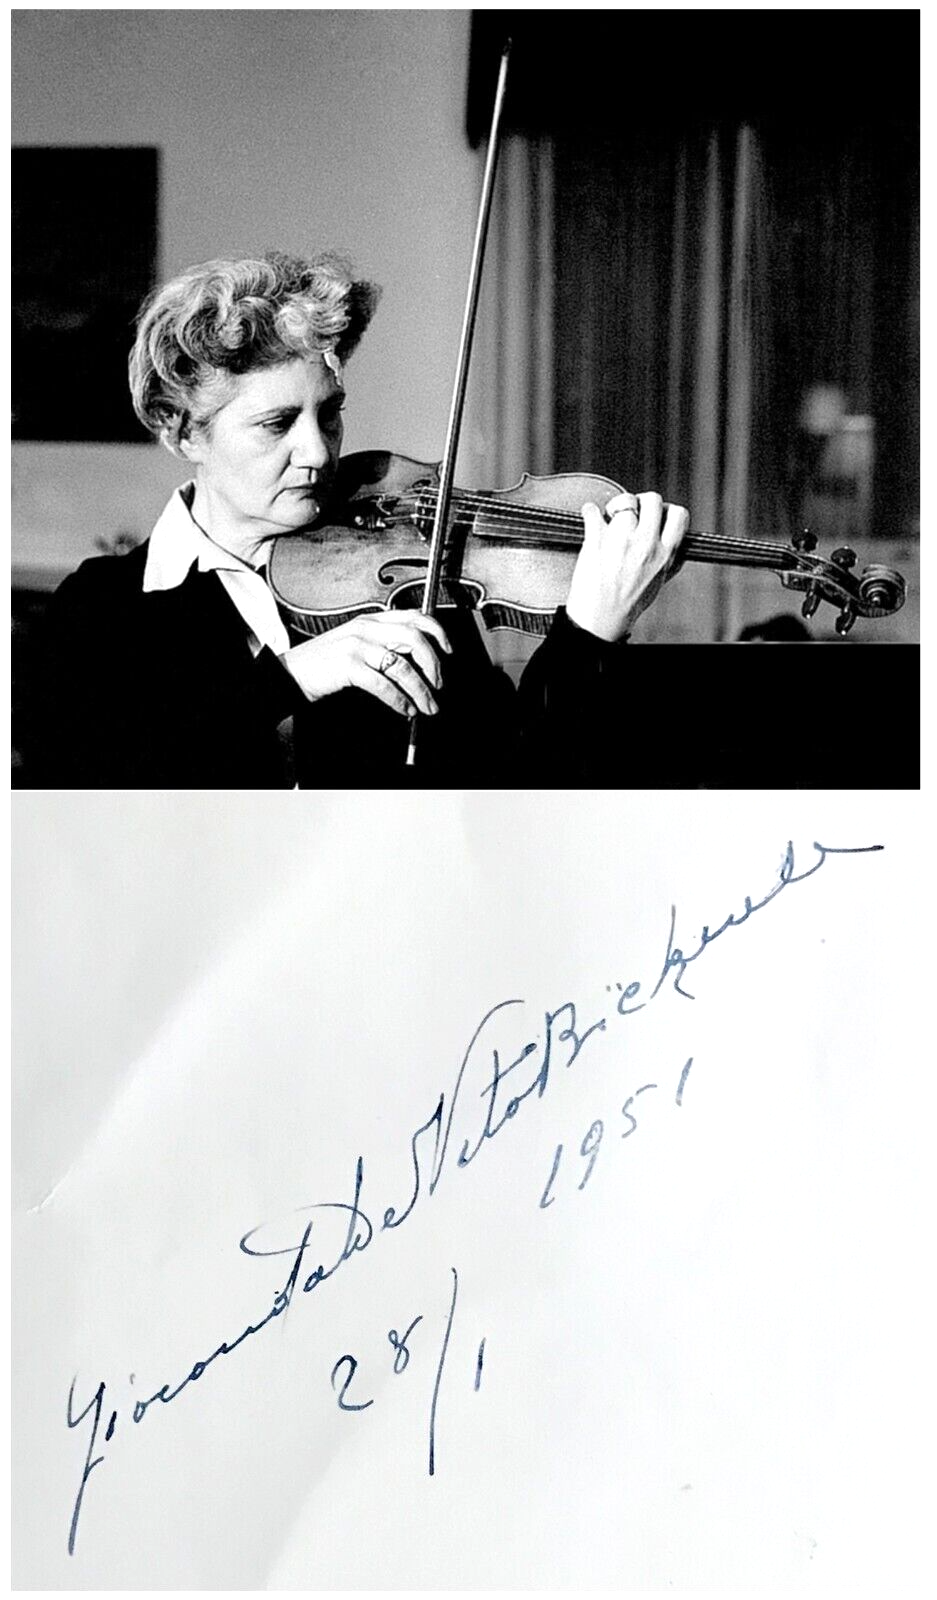 Gioconda De Vito Bicknell
28/1 1951